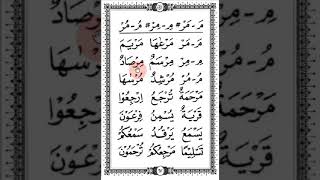 مَ - مَرْ * مِ - مِرْ * مُ - مُرْ
مَ - مَرْ مَرْعٰهَا مَرْيَمَ
مِ - مِرْ مِرْسَمٌ مِرْصَادٌ
مُ - مُرْ مُرْشِدٌ مُرْسٰهَا
مَرْحَمَةٌ تُرْجَعُ اِرْجِعُوْا
قَرْيَةٌ فِرْعَوْنَ
يَسْمَعُ سَمْعُكُمْ
مَرْجِعُكُمْ تُرْحَمُوْنَ